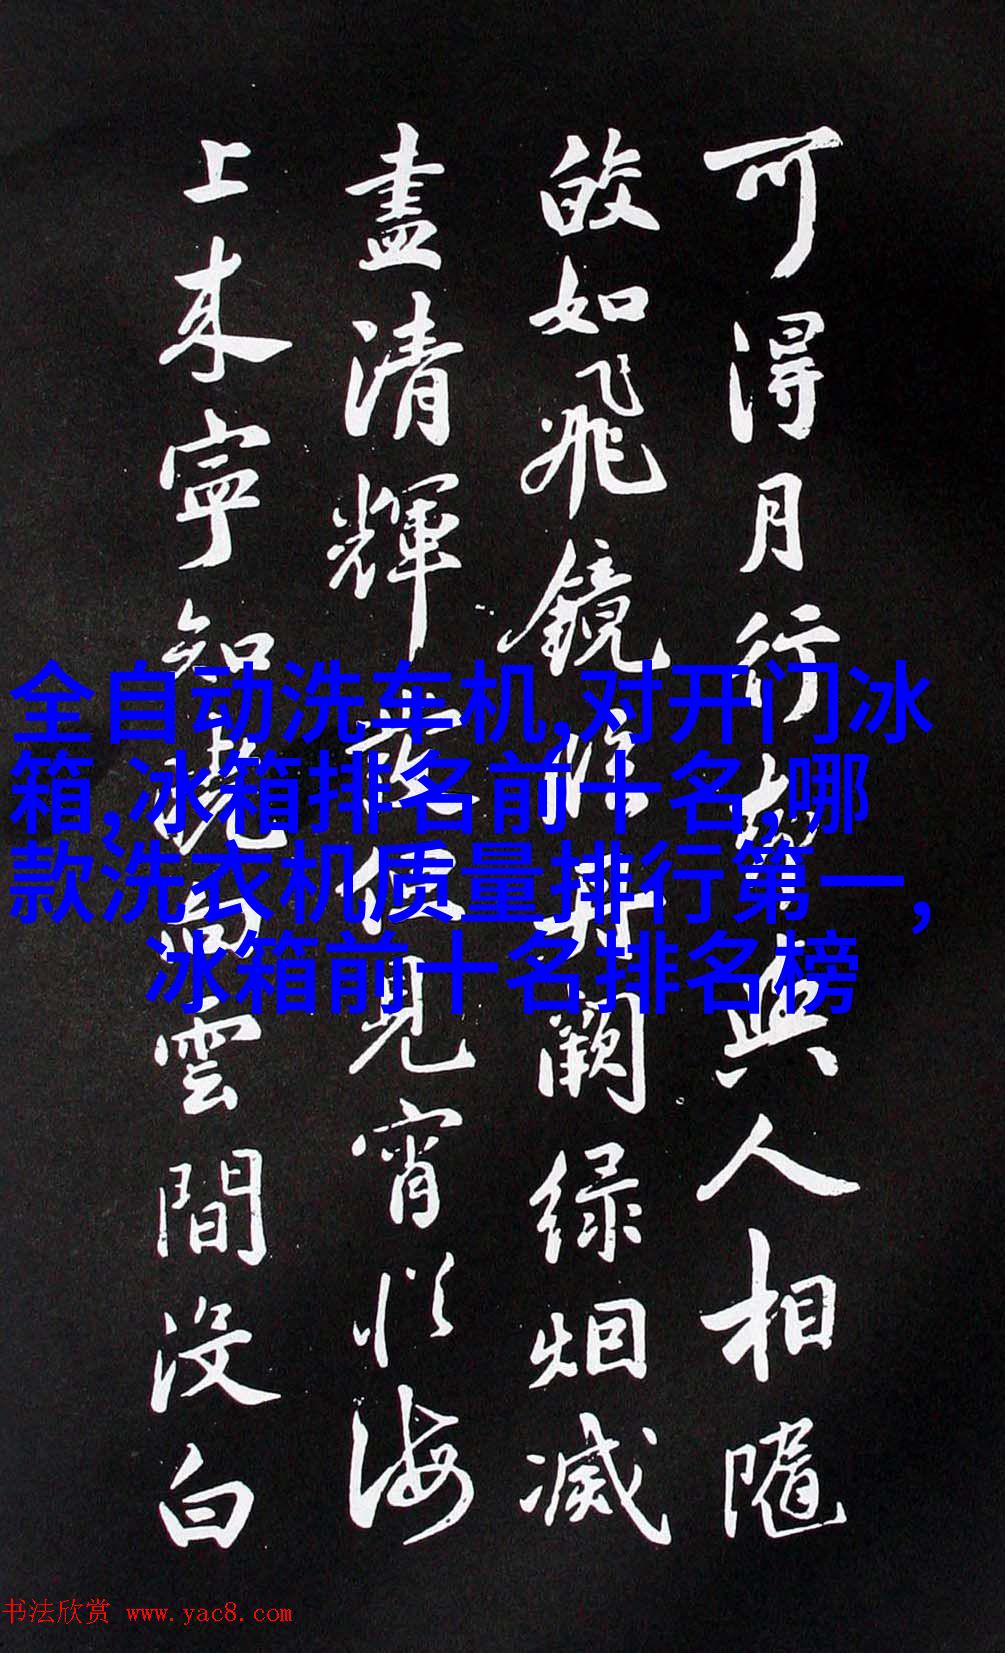 可得月行却與人相隨
皎如飛鏡臨丹闕緑烟滅
盡清輝發但見宵從海
上来寧知曉向雲間没白
全自动洗车机,对开门冰
箱,冰箱排名前十名,哪
款洗衣机质量排行第一,
冰箱前十名排名榜
书法欣赏 www.yac8.com